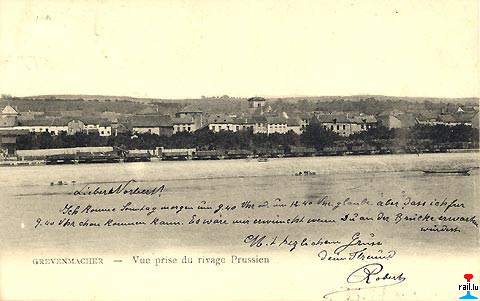 Ich komme Sonntag morgen um 9.40 Uhr d. um 12.40 Uhr glaube aber dass ich für
9.40 Uhr schon kommen kann. Es wäre mir erwünscht wenn Du an der Brücke erwarten
würdest
Mit herzlichem Gruss
dein Freund
Robert
GREVENMACHER – Vue prise du rivage Prussien
rail.lu